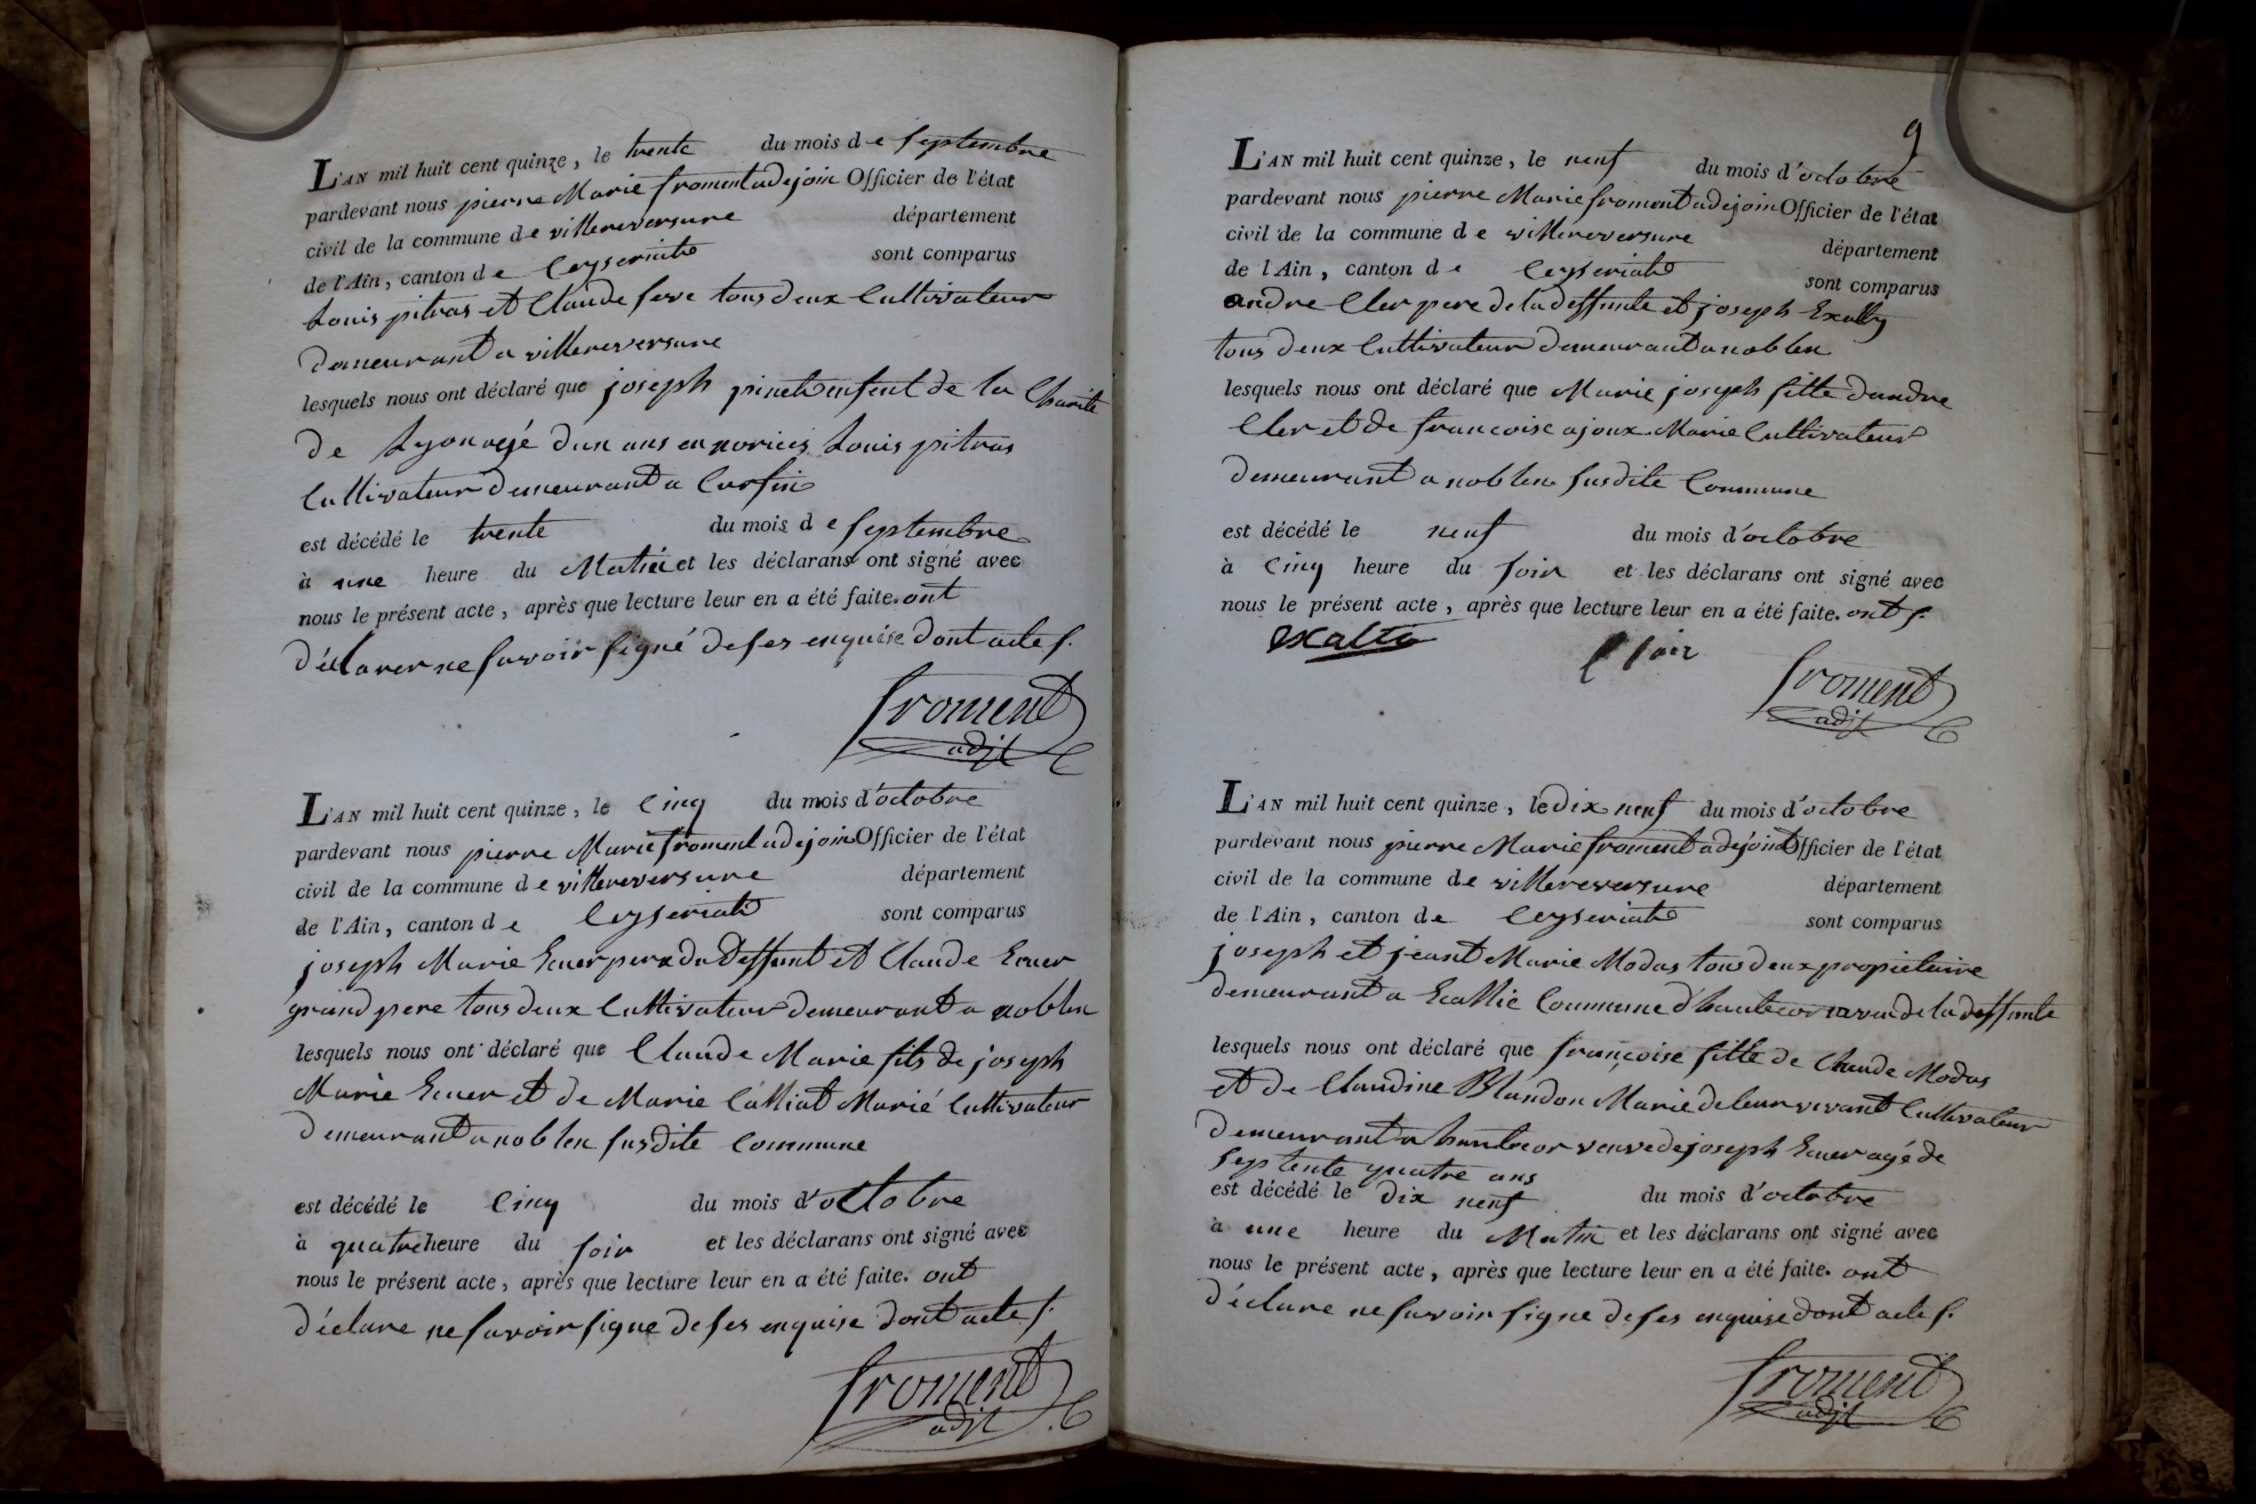 L'AN mil huit cent quinze, le trente du mois de septembre
pardevant nous pierre Marie froment adejoin Officier de l'état
civil de la commune de villereversure département
de l'Ain, canton de Ceyseriat sont comparus
Louis pitras et Claude feve tous deux Cultivateur
demeurant a villereversure
lesquels nous ont déclaré que joseph pineth enfent de la Charite
de Lyon agé dun ans en norices Louis pitras
Cultivateur demeurant a Curfin
est décédé le trente du mois de septembre
à une heure du Matin et les déclarans ont signé avec
nous le présent acte, après que lecture leur en a été faite. ont
déclarer ne savoir signé de ses enquise dont acte f.
froment
adjt
L'AN mil huit cent quinze, le Cinq du mois d'octobre
pardevant nous pierre Marie froment adejoin Officier de l'état
civil de la commune de villereversure département
de l'Ain, canton de Ceyseriat sont comparus
joseph Marie Ecuer pere du deffunt et Claude Ecuer
grand pere tous deux Cultivateur demeurant a noblen
lesquels nous ont déclaré que Claude Marie fils de joseph
Marie Ecuer et de Marie Calliat Marié Cultivateur
demeurant a noblen susdite Commune
est décédé le Cinq du mois d'octobre
à quatre heure du soir et les déclarans ont signé avec
nous le présent acte, après que lecture leur en a été faite. ont
déclare ne savoir signe de ses enquise dont acte f.
froment
adjt
9
L'AN mil huit cent quinze, le neuf du mois d'octobre
pardevant nous pierre Marie froment adejoin Officier de l'état
civil de la commune de villereversure département
de l'Ain, canton de Ceyseriat sont comparus
andre Cler pere de la deffunte et joseph
tous deux Cultivateur demeurant a noblen
lesquels nous ont déclaré que Marie joseph fille dandre
Cler et de francoise ajoux Marie Cultivateur
demeurant a noblen susdite Commune
est décédé le neuf du mois d'octobre
à Cinq heure du soir et les déclarans ont signé avec
nous le présent acte, après que lecture leur en a été faite. ont f.
froment
adjt
L'AN mil huit cent quinze, le dix neuf du mois d'octobre
pardevant nous pierre Marie froment adejoint Officier de l'état
civil de la commune de villereversure département
de l'Ain, canton de Ceyseriat sont comparus
joseph et jeant Marie Modas tous deux propietaire
demeurant a Commune d'hautecor de la deffunte
lesquels nous ont déclaré que françoise fille de Claude Modas
et de Claudine Blandon Marie de leur vivant Cultivateur
demeurant a hautecor veuve de joseph Ecuer agé de
septente quatre ans
est décédé le dix neuf du mois d'octobre
à une heure du Matin et les déclarans ont signé avec
nous le présent acte, après que lecture leur en a été faite. ont
déclare ne savoir signe de ses enquise dont acte f.
froment
adjt